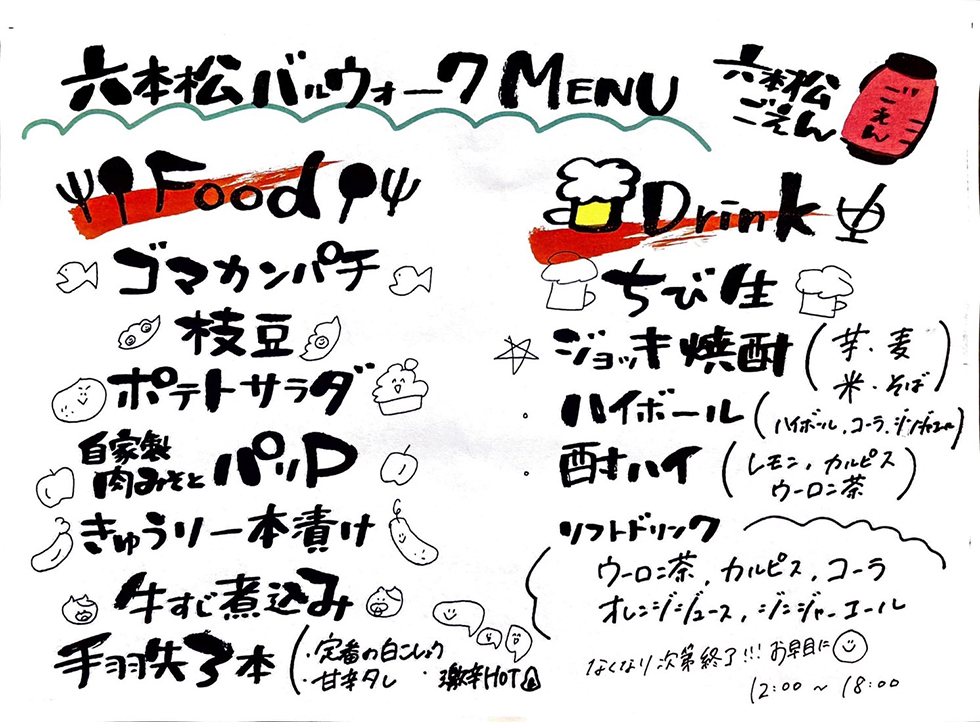 六本松バルウォーク MENU
六本松
ごえん
ごえん
Food
ゴマカンパチ
枝豆
ポテトサラダ
自家製
肉みそとパリP
きゅうり一本漬け
牛すじ煮込み
手羽先3本
・定番の白こしょう
・甘辛タレ ・激辛HOT
Drink
ちび生
ジョッキ焼酎 (芋・麦
米・そば)
・ハイボール (ハイボール、コーラ、ジンジャエール)
・酎ハイ (レモン、カルピス
ウーロン茶)
ソフトドリンク
ウーロン茶、カルピス、コーラ
オレンジジュース、ジンジャーエール
なくなり次第終了!!! お早目に
12:00 〜 18:00